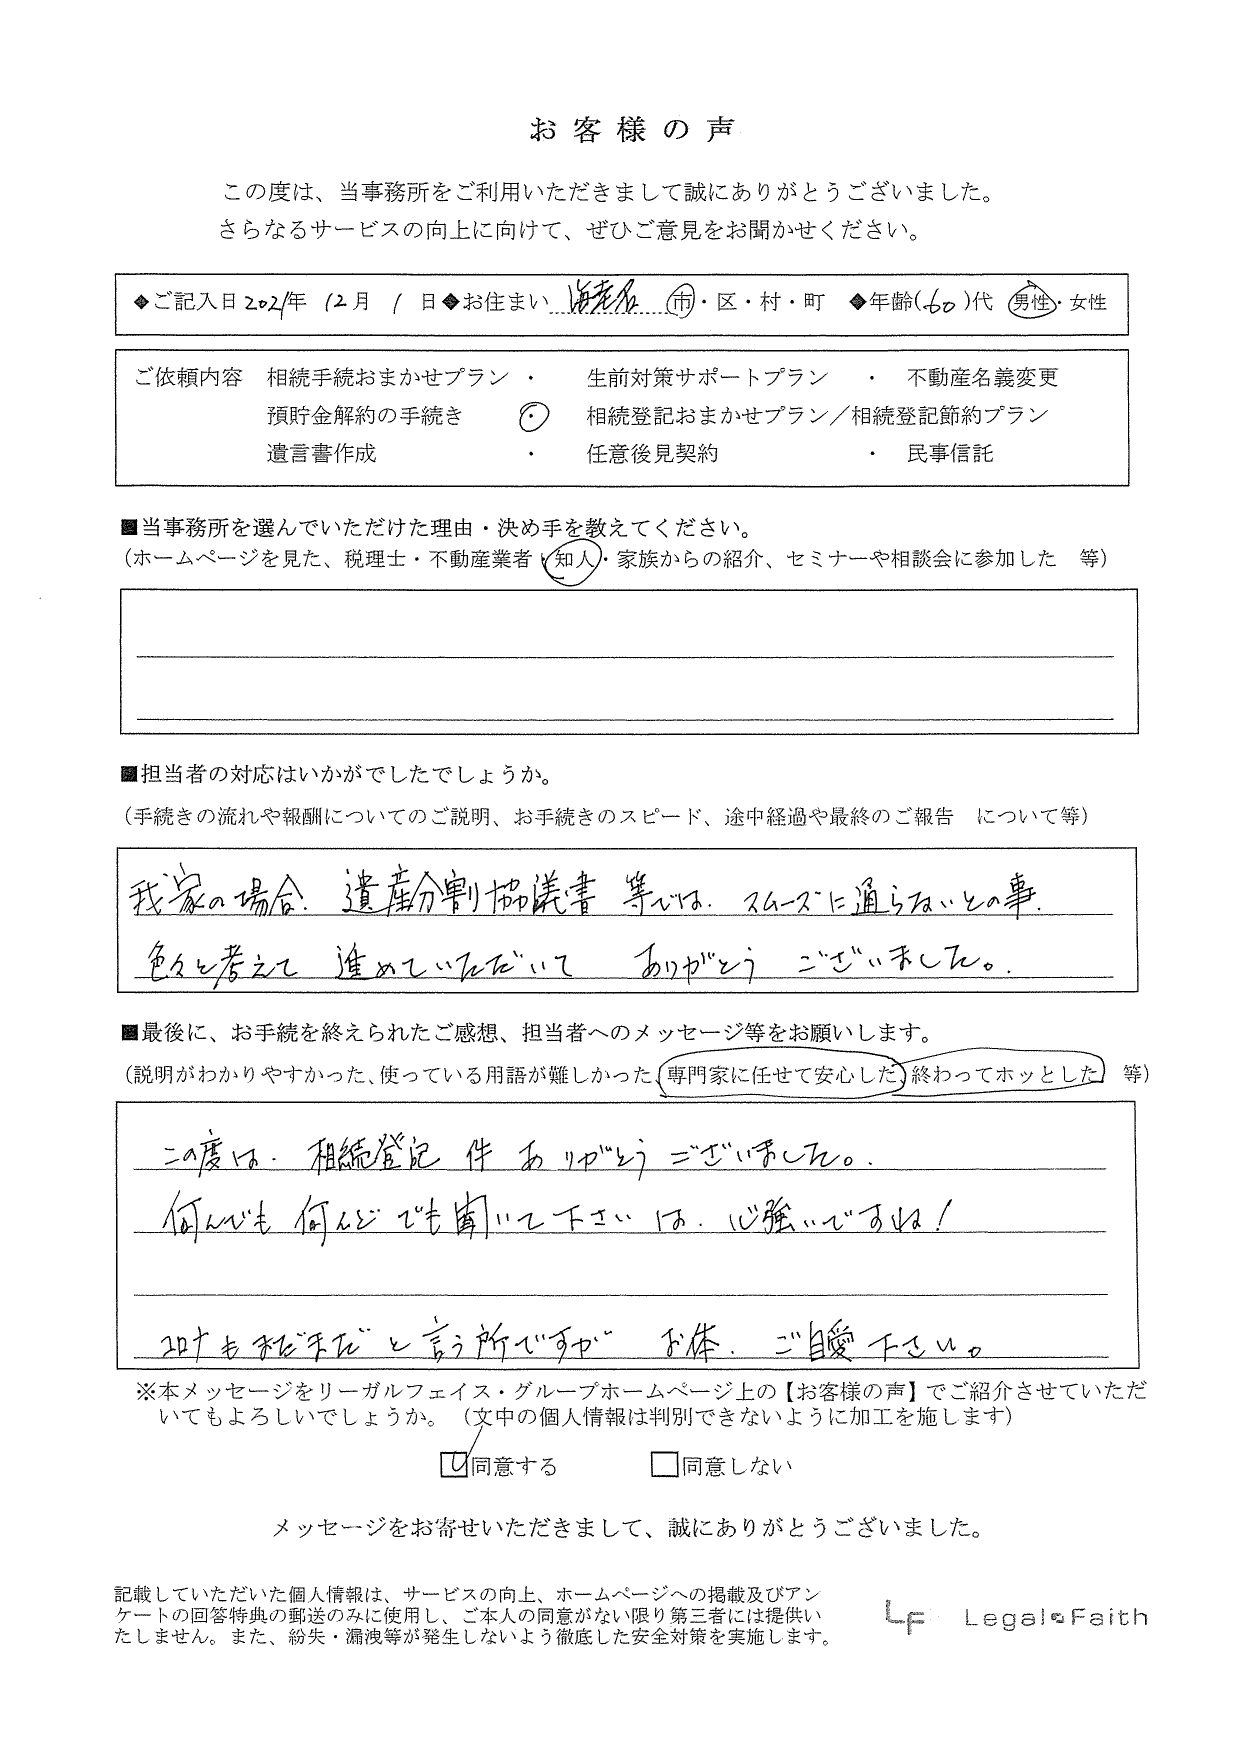 お客様の声
この度は、当事務所をご利用いただきまして誠にありがとうございました。
さらなるサービスの向上に向けて、ぜひご意見をお聞かせください。
◆ご記入日2021年 12月 1 日◆お住まい 海老名 市・区・村・町 ◆年齢(60)代 男性・女性
ご依頼内容 相続手続おまかせプラン ・ 生前対策サポートプラン ・ 不動産名義変更
預貯金解約の手続き ・ 相続登記おまかせプラン／相続登記節約プラン
遺言書作成 ・ 任意後見契約 ・ 民事信託
■当事務所を選んでいただけた理由・決め手を教えてください。
（ホームページを見た、税理士・不動産業者・知人・家族からの紹介、セミナーや相談会に参加した 等）
■担当者の対応はいかがでしたでしょうか。
（手続きの流れや報酬についてのご説明、お手続きのスピード、途中経過や最終のご報告 について等）
我家の場合、遺産分割協議書 等では、スムーズに通らないとの事、
色々と考えて 進めていただいて ありがとう ございました。
■最後に、お手続を終えられたご感想、担当者へのメッセージ等をお願いします。
（説明がわかりやすかった、使っている用語が難しかった、専門家に任せて安心した、終わってホッとした 等）
この度は、相続登記 件 ありがとう ございました。
何んでも 何んどでも聞いて下さい は、心強いですね！
コロナもまだまだと言う所ですが お体、ご自愛下さい。
※本メッセージをリーガルフェイス・グループホームページ上の【お客様の声】でご紹介させていただ
いてもよろしいでしょうか。（文中の個人情報は判別できないように加工を施します）
同意する 同意しない
メッセージをお寄せいただきまして、誠にありがとうございました。
記載していただいた個人情報は、サービスの向上、ホームページへの掲載及びアン
ケートの回答特典の郵送のみに使用し、ご本人の同意がない限り第三者には提供い
たしません。また、紛失・漏洩等が発生しないよう徹底した安全対策を実施します。
LF Legal Faith